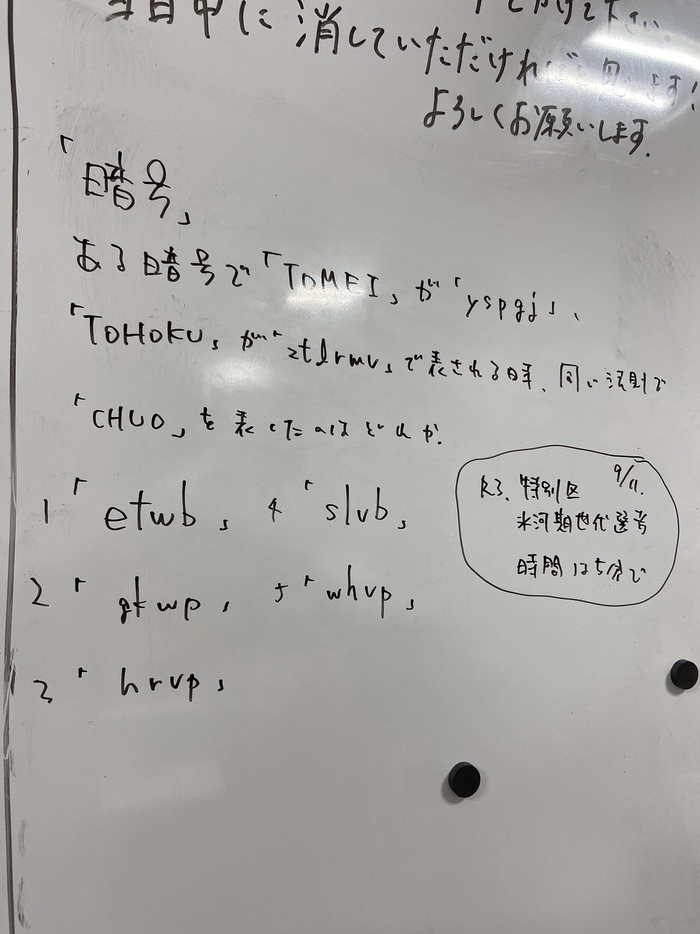 当日中に消していただければと思います!
よろしくお願いします.
「暗号」
ある暗号で「TOMEI」が「yspgj」、
「TOHOKU」が「ztlrmv」で表される時、同じ法則で
「CHUO」を表したのはどれか.
1「etwb」 4「slvb」
2「gkwp」 5「whvp」
3「hrvp」
9/11.
R3. 特別区
氷河期世代選考
時間は5分で